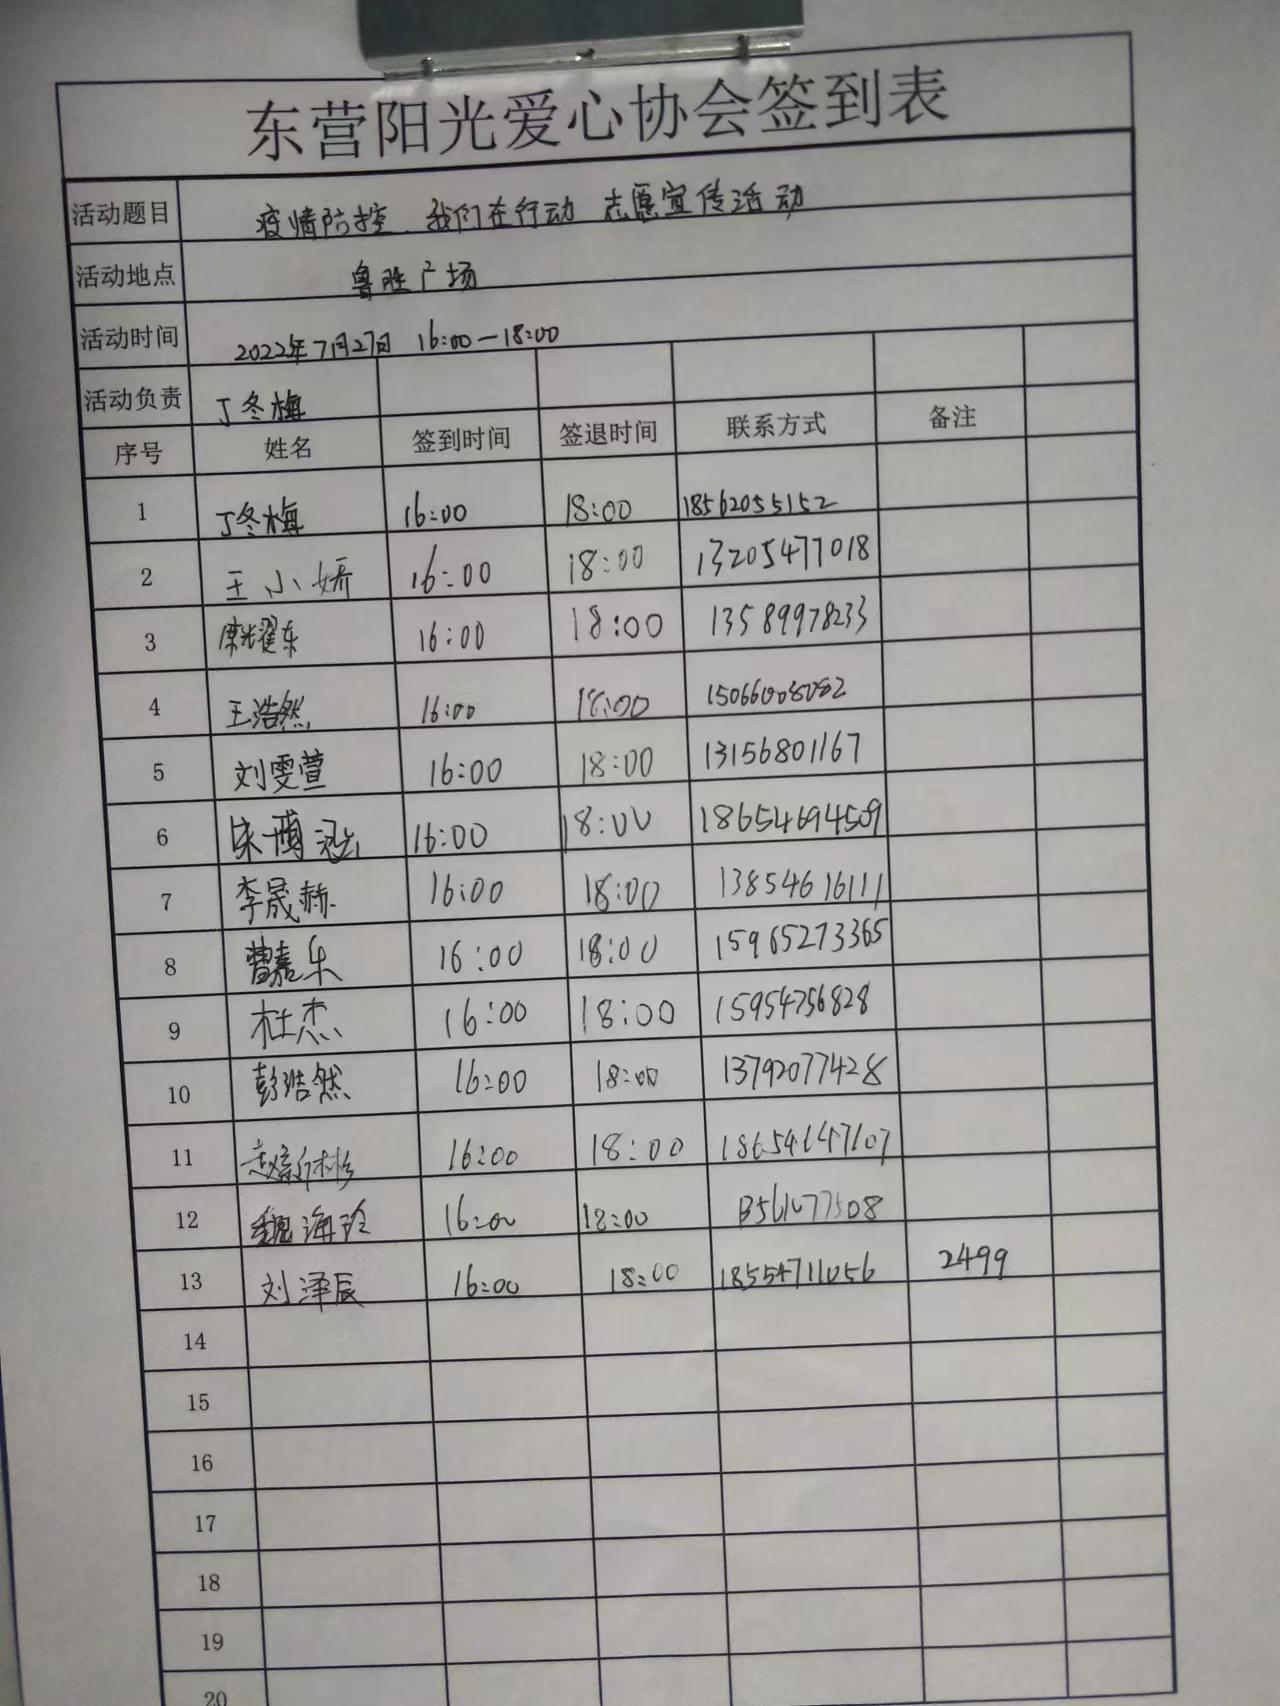 东营阳光爱心协会签到表
活动题目 疫情防控、我们在行动 志愿宣传活动
活动地点 鲁胜广场
活动时间 2022年7月27日 16:00—18:00
活动负责 丁冬梅
序号 姓名 签到时间 签退时间 联系方式 备注
1 丁冬梅 16:00 18:00 18562055152
2 王小妍 16:00 18:00 13205477018
3 16:00 18:00 13589978233
4 王浩然 16:00 18:00 15066008082
5 刘雯萱 16:00 18:00 13156801167
6 16:00 18:00 18654694509
7 李晟赫 16:00 18:00 13854616111
8 曹嘉乐 16:00 18:00 15965273365
9 杜杰 16:00 18:00 15954756828
10 彭浩然 16:00 18:00 13792077428
11 16:00 18:00 18654647107
12 魏海玲 16:00 18:00
13 刘泽辰 16:00 18:00 18554711056 2499
14
15
16
17
18
19
20